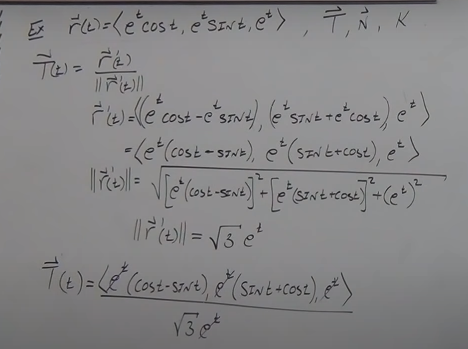 Ex r⃗(t)=⟨e^t cost, e^t sint, e^t⟩ , T⃗, N⃗, K
T⃗(t) = r⃗'(t) / ||r⃗'(t)||
r⃗'(t)=⟨(e^t cost-e^t sint), (e^t sint+e^t cost), e^t⟩
=⟨e^t(cost-sint), e^t(sint+cost), e^t⟩
||r⃗'(t)||= √([e^t(cost-sint)]^2+[e^t(sint+cost)]^2+(e^t)^2)
||r⃗'(t)|| = √3 e^t
T⃗(t)=⟨e^t(cost-sint), e^t(sint+cost), e^t⟩ / √3 e^t